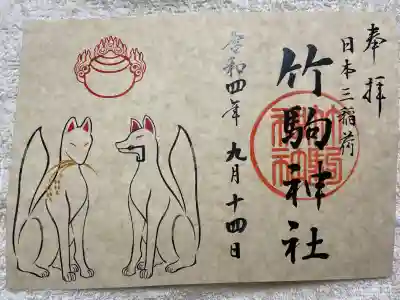 奉拝
日本三稲荷
竹駒神社
令和四年九月十四日